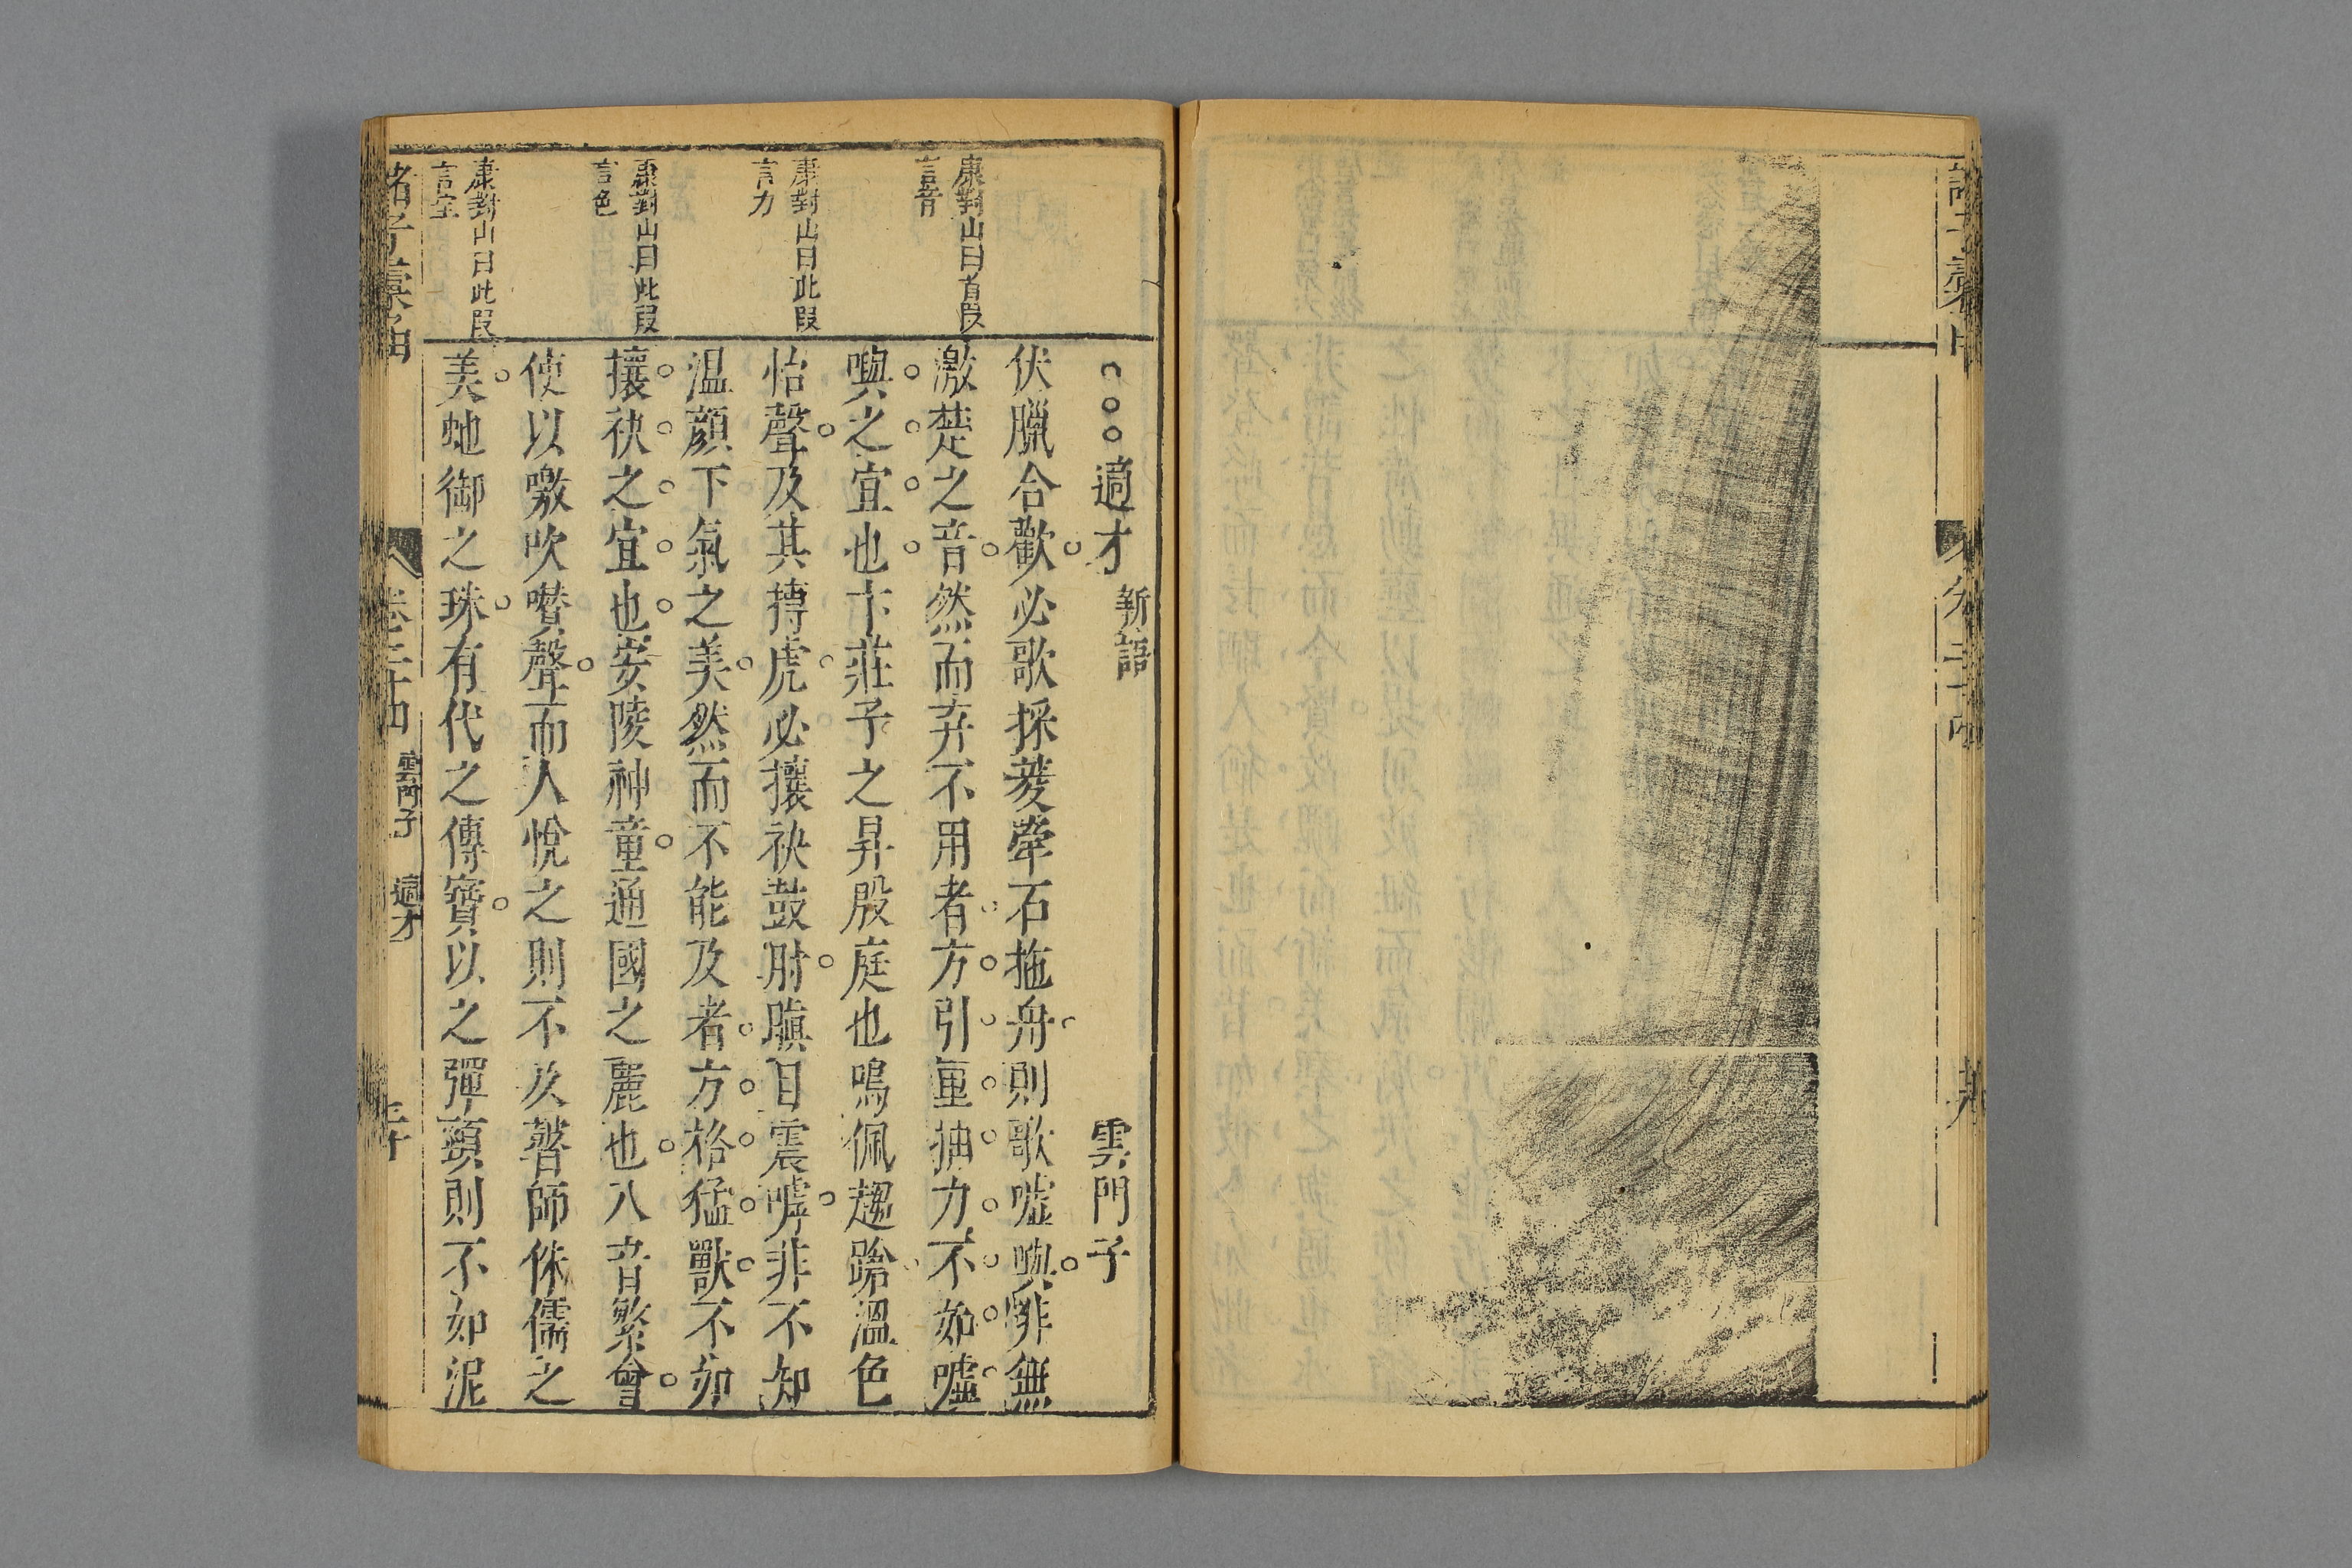 適才 新語 雲門子
伏臘合歡必歌採菱牽石拖舟則歌噓噢非無
激楚之音然而弃不用者方引重抽力不如噓
噢之宜也卞莊子之昇殷庭也鳴佩趨蹌溫色
怡聲及其搏虎必攘袂鼓肘瞋目震呼非不知
温顏下氣之美然而不能及者方格猛獸不如
攘袂之宜也安陵神童通國之麗也八音繁會
使以噭吹噆聲而人悅之則不及瞽師侏儒之
美虵御之珠有代之傳寶以之彈頸則不如泥
康對山曰首段
言音
康對山曰此叚
言力
康對山曰此叚
言色
康對山曰此叚
言宝
諸子彙函
卷二十四 雲門子 適才
三十